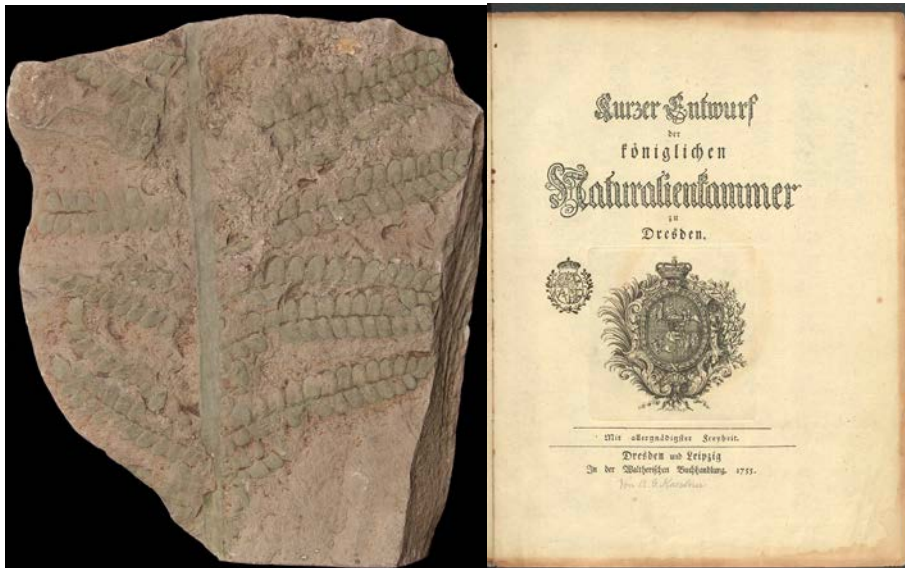 Kurzer Entwurf
der
königlichen
Naturalienkammer
zu
Dresden.
Mit allergnädigster Freyheit.
Dresden und Leipzig
In der Waltherischen Buchhandlung. 1755.